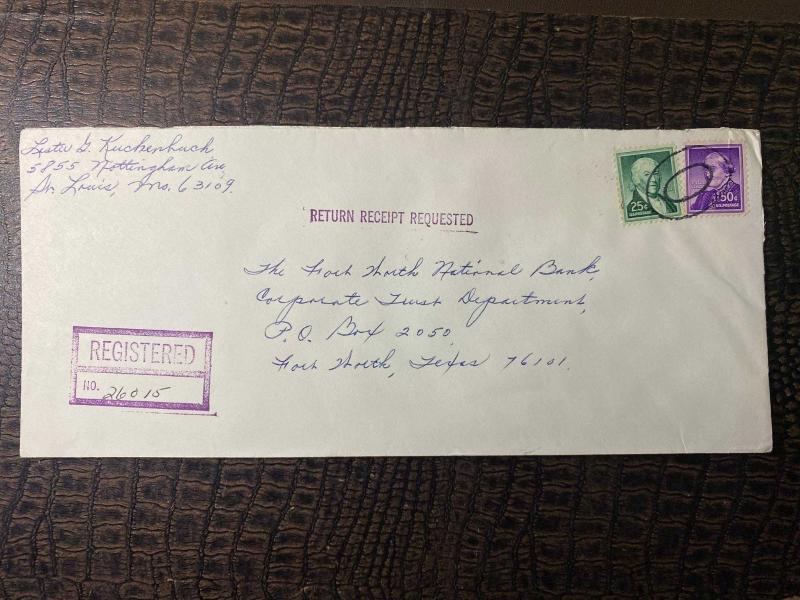 Lester G. Kuckenbuch
5855 Nottingham Ave,
St. Louis, Mo. 63109.
RETURN RECEIPT REQUESTED
25¢
U.S. POSTAGE
50¢
U.S. POSTAGE
The Fort Worth National Bank,
Corporate Trust Department,
P.O. Box 2050,
Fort Worth, Texas 76101.
REGISTERED
NO. 26015